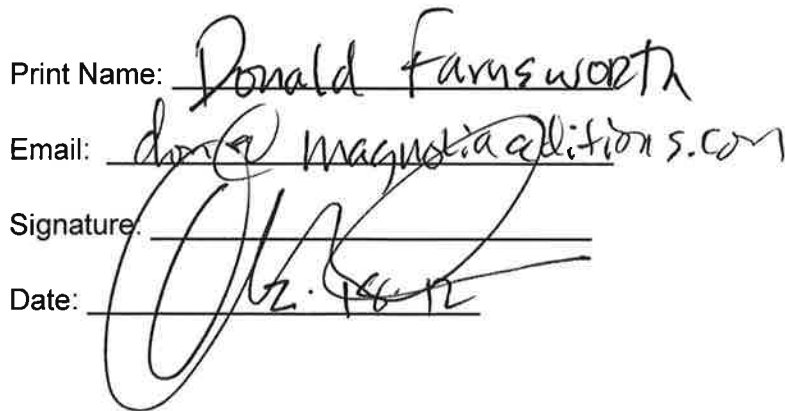 Print Name: Donald Farnsworth
Email: don@magnoliaeditions.com
Signature:
Date: 2.18.12